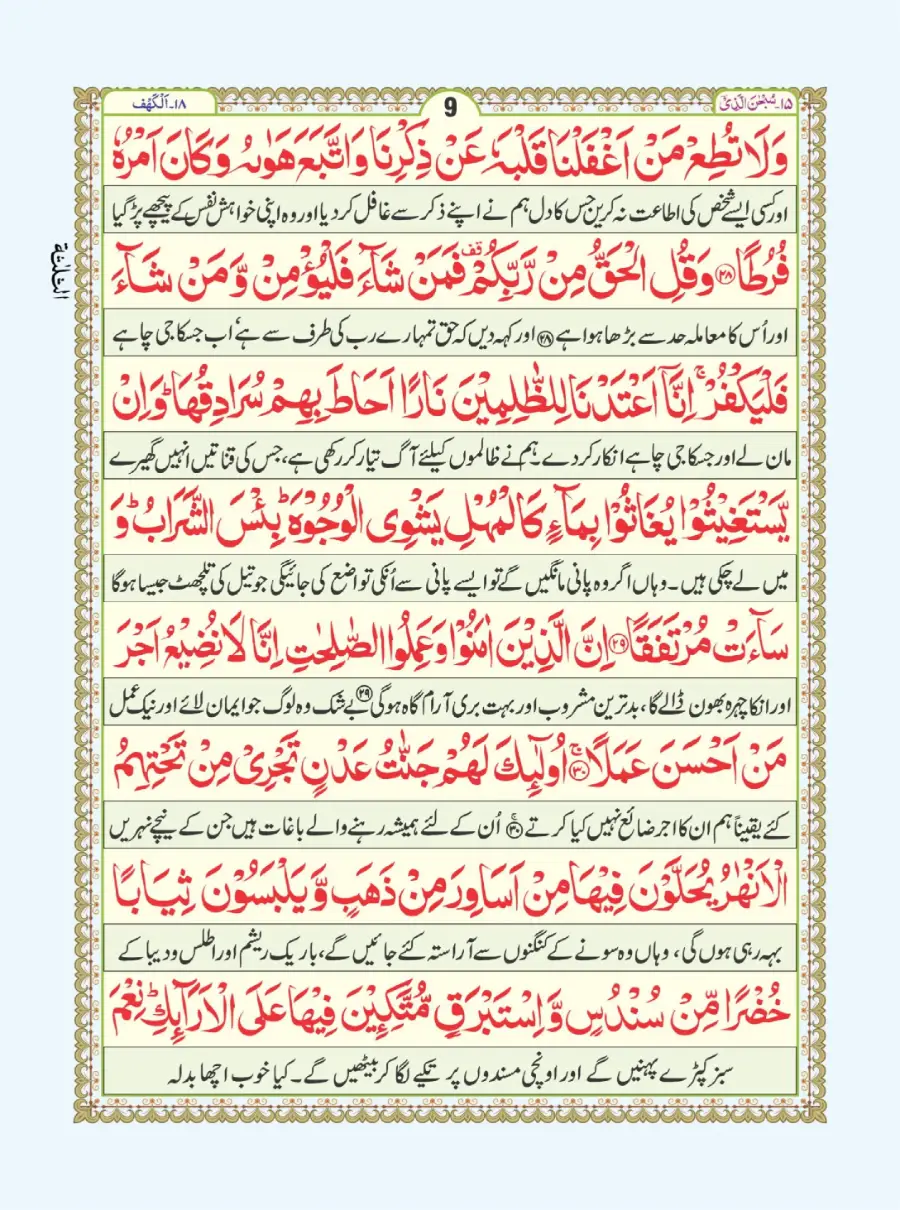 ۱۵۔سُبْحٰنَ الَّذِیْۤ
9
۱۸۔اَلْکَهْف
وَلَا تُطِعْ مَنْ اَغْفَلْنَا قَلْبَهٗ عَنْ ذِكْرِنَا وَاتَّبَعَ هَوٰىهُ وَكَانَ اَمْرُهٗ
اور کسی ایسے شخص کی اطاعت نہ کریں جس کا دل ہم نے اپنے ذکر سے غافل کر دیا اور وہ اپنی خواہش نفس کے پیچھے پڑ گیا
الثلثة
فُرُطًا ﴿۲۸﴾ وَقُلِ الْحَقُّ مِنْ رَّبِّكُمْ قف فَمَنْ شَآءَ فَلْيُؤْمِنْ وَّمَنْ شَآءَ
اور اُس کا معاملہ حد سے بڑھا ہوا ہے ﴿۲۸﴾ اور کہہ دیں کہ حق تمہارے رب کی طرف سے ہے، اب جسکا جی چاہے
فَلْيَكْفُرْ ۚ اِنَّاۤ اَعْتَدْنَا لِلظّٰلِمِيْنَ نَارًا اَحَاطَ بِهِمْ سُرَادِقُهَا ؕ وَاِنْ
مان لے اور جسکا جی چاہے انکار کر دے۔ ہم نے ظالموں کیلئے آگ تیار کر رکھی ہے، جس کی قناتیں انہیں گھیرے
يَّسْتَغِيْثُوْا يُغَاثُوْا بِمَآءٍ كَالْمُهْلِ يَشْوِى الْوُجُوْهَ ؕ بِئْسَ الشَّرَابُ ؕ وَ
میں لے چکی ہیں۔ وہاں اگر وہ پانی مانگیں گے تو ایسے پانی سے اُنکی تواضع کی جائیگی جو تیل کی تلچھٹ جیسا ہوگا
سَآءَتْ مُرْتَفَقًا ﴿۲۹﴾ اِنَّ الَّذِيْنَ اٰمَنُوْا وَعَمِلُوا الصّٰلِحٰتِ اِنَّا لَا نُضِيْعُ اَجْرَ
اور انکا چہرہ بھون ڈالے گا، بدترین مشروب اور بہت بری آرام گاہ ہوگی ﴿۲۹﴾ بے شک وہ لوگ جو ایمان لائے اور نیک عمل
مَنْ اَحْسَنَ عَمَلًا ۚ ﴿۳۰﴾ اُولٰٓئِكَ لَهُمْ جَنّٰتُ عَدْنٍ تَجْرِىْ مِنْ تَحْتِهِمُ
کئے یقیناً ہم ان کا اجر ضائع نہیں کیا کرتے ﴿۳۰﴾ اُن کے لئے ہمیشہ رہنے والے باغات ہیں جن کے نیچے نہریں
الْاَنْهٰرُ يُحَلَّوْنَ فِيْهَا مِنْ اَسَاوِرَ مِنْ ذَهَبٍ وَّيَلْبَسُوْنَ ثِيَابًا
بہہ رہی ہوں گی، وہاں وہ سونے کے کنگنوں سے آراستہ کئے جائیں گے، باریک ریشم اور اطلس و دیبا کے
خُضْرًا مِّنْ سُنْدُسٍ وَّاِسْتَبْرَقٍ مُّتَّكِـِٕيْنَ فِيْهَا عَلَى الْاَرَآئِكِ ؕ نِعْمَ
سبز کپڑے پہنیں گے اور اونچی مسندوں پر تکیے لگا کر بیٹھیں گے۔ کیا خوب اچھا بدلہ